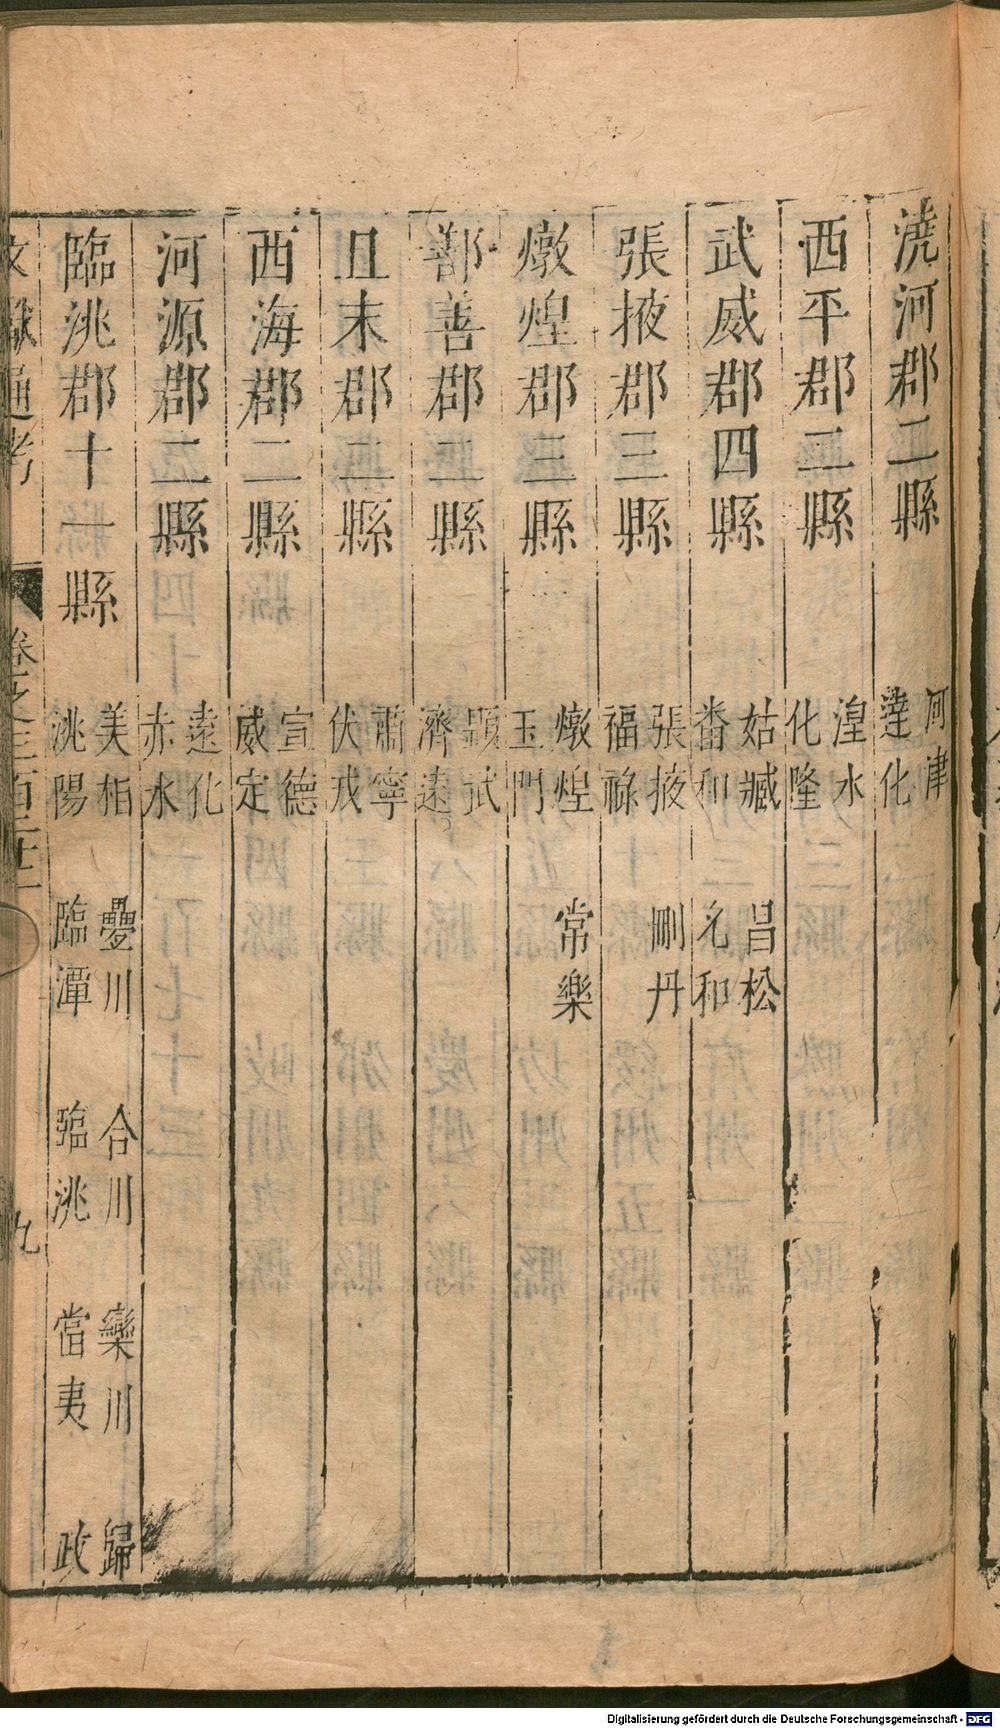 澆河郡二縣 河津 達化
西平郡二縣 湟水 化隆
武威郡四縣 姑臧 昌松 番和 允和
張掖郡三縣 張掖 刪丹 福祿
燉煌郡三縣 燉煌 常樂 玉門
鄯善郡二縣 顯武 濟遠
且末郡二縣 肅寧 伏戎
西海郡二縣 宣德 威定
河源郡二縣 遠化 赤水
臨洮郡十一縣 美相 疊川 合川 樂川 歸政 洮陽 臨潭 臨洮 當夷
文獻通考 卷之三百二十二 九
Digitalisierung gefördert durch die Deutsche Forschungsgemeinschaft - DFG